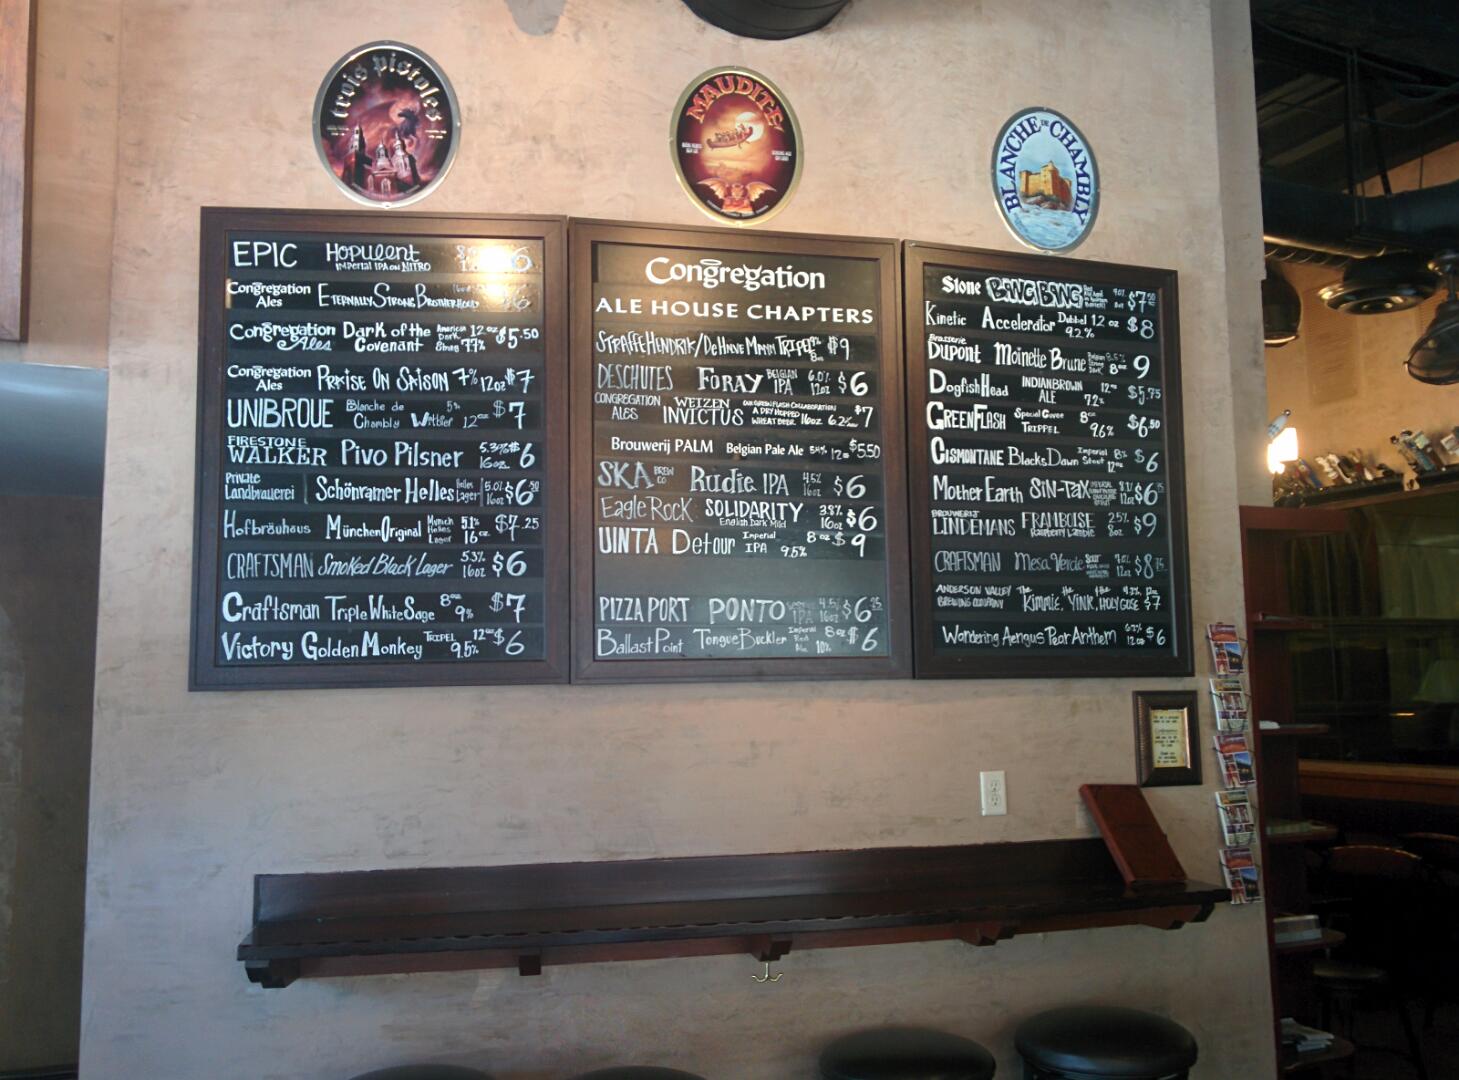 trois pistoles
MAUDITE
BLANCHE DE CHAMBLY
EPIC Hopulent 6
IMPERIAL IPA ON NITRO
Congregation Ales Eternally Strong Brotherhood 6
Congregation Ales Dark of the Covenant American Dark Strong 12 oz 7.7% $5.50
Congregation Ales Praise On Saison 7% 12oz $7
UNIBROUE Blanche de Chambly Witbier 5% 12oz $7
FIRESTONE WALKER Pivo Pilsner 5.3% 16oz $6
Private Landbrauerei Schönramer Helles Helles Lager 5.0% 16oz $6.50
Hofbräuhaus München Original Munich Helles Lager 5.1% 16oz $7.25
CRAFTSMAN Smoked Black Lager 5.3% 16oz $6
Craftsman Triple White Sage 8oz 9% $7
Victory Golden Monkey TRIPEL 12oz 9.5% $6
Congregation
ALE HOUSE CHAPTERS
STRAFFE HENDRIK/ TRIPEL $9
DESCHUTES FORAY BELGIAN IPA 6.0% 12oz $6
CONGREGATION ALES WEIZEN INVICTUS OUR GREEN FLASH COLLABORATION A DRY HOPPED WHEAT BEER 16oz 6.2% $7
Brouwerij PALM Belgian Pale Ale 5.4% 12oz $5.50
SKA BREW CO Rudie IPA 4.5% 16oz $6
Eagle Rock SOLIDARITY English Dark Mild 3.8% 16oz $6
UINTA Detour Imperial IPA 8oz 9.5% $9
PIZZA PORT PONTO IPA 4.5% $6.25
Ballast Point Tongue Buckler Imperial Red Ale 8oz 10% $6
Stone BANG! BANG $7.50
Kinetic Accelerator Dubbel 12 oz 9.2% $8
Brasserie DUPONT Moinette Brune Belgian Strong Dark 8.5% 8oz 9
Dogfish Head INDIAN BROWN ALE 12oz 7.2% $5.75
GREEN FLASH Special Cuvee TRIPPEL 8oz 9.6% $6.50
CISMONTANE Blacks Dawn Imperial Stout 8% 12oz $6
Mother Earth SIN-TAX 12oz $6
BROUWERIJ LINDEMANS FRAMBOISE Raspberry Lambic 2.5% 8oz $9
CRAFTSMAN Mesa Verde Sour 12oz $8
ANDERSON VALLEY BREWING COMPANY The Kimmie, the Yink, & the Holy Gose $7
Wandering Aengus Pear Anthem 12oz $6